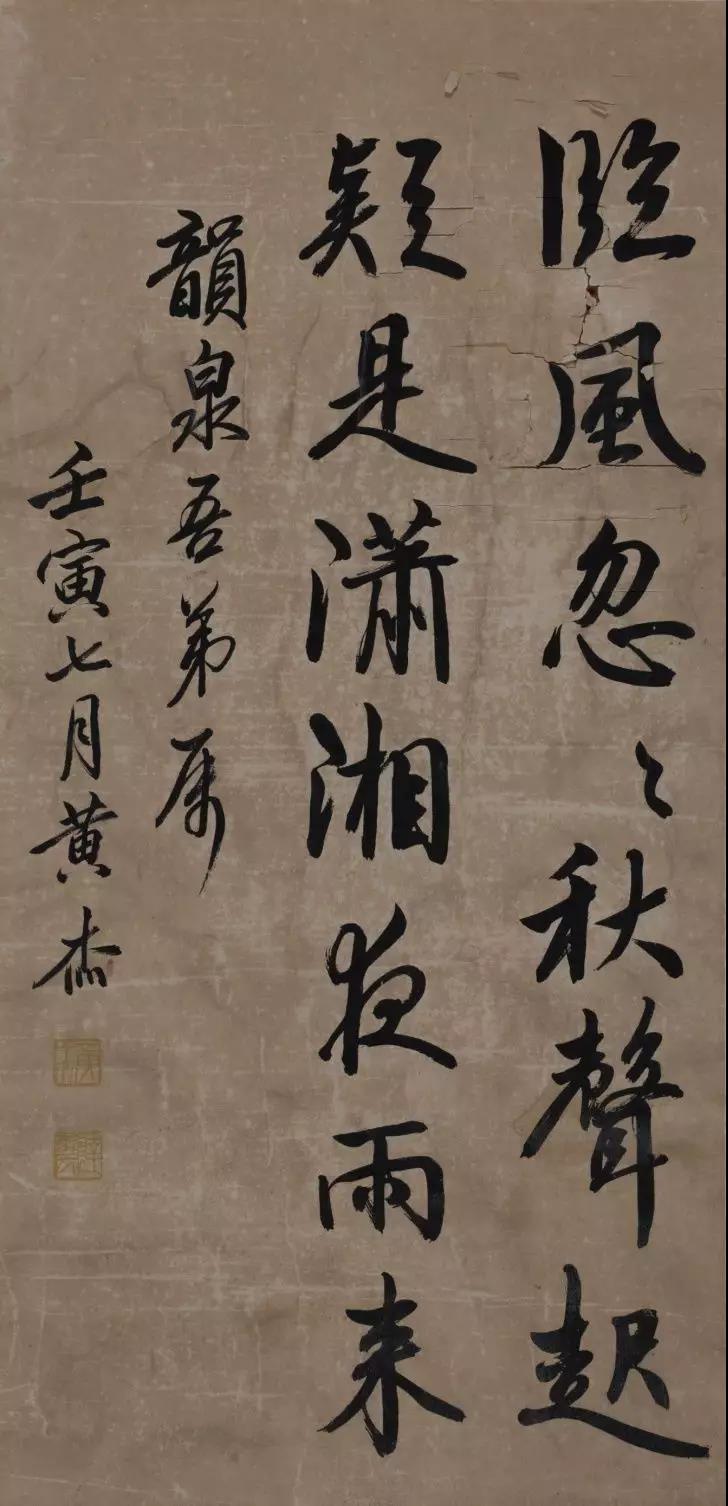 臨風忽〻秋聲起
疑是瀟湘夜雨来
韻泉吾弟属
壬寅七月黄杰